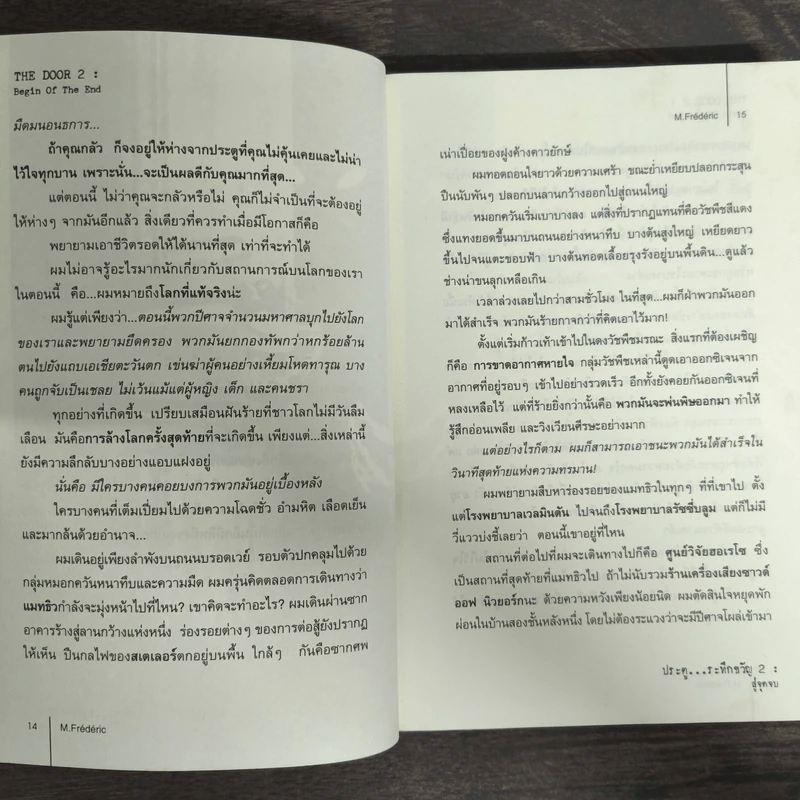 THE DOOR 2 :
Begin Of The End
มืดมนอนธการ...
ถ้าคุณกลัว ก็จงอยู่ให้ห่างจากประตูที่คุณไม่คุ้นเคยและไม่น่า
ไว้ใจทุกบาน เพราะนั่น...จะเป็นผลดีกับคุณมากที่สุด...
แต่ตอนนี้ ไม่ว่าคุณจะกลัวหรือไม่ คุณก็ไม่จำเป็นที่จะต้องอยู่
ให้ห่างๆ จากมันอีกแล้ว สิ่งเดียวที่ควรทำเมื่อมีโอกาสก็คือ
พยายามเอาชีวิตรอดให้ได้นานที่สุด เท่าที่จะทำได้
ผมไม่อาจรู้อะไรมากนักเกี่ยวกับสถานการณ์บนโลกของเรา
ในตอนนี้ คือ...ผมหมายถึงโลกที่แท้จริงน่ะ
ผมรู้แต่เพียงว่า...ตอนนี้พวกปีศาจจำนวนมหาศาลบุกไปยังโลก
ของเราและพยายามยึดครอง พวกมันยกกองทัพกว่าหกร้อยล้าน
ตนไปยังแถบเอเชียตะวันตก เข่นฆ่าผู้คนอย่างเหี้ยมโหดทารุณ บาง
คนถูกจับเป็นเชลย ไม่เว้นแม้แต่ผู้หญิง เด็ก และคนชรา
ทุกอย่างที่เกิดขึ้น เปรียบเสมือนฝันร้ายที่ชาวโลกไม่มีวันลืม
เลือน มันคือการล้างโลกครั้งสุดท้ายที่จะเกิดขึ้น เพียงแต่...สิ่งเหล่านี้
ยังมีความลึกลับบางอย่างแอบแฝงอยู่
นั่นคือ มีใครบางคนคอยบงการพวกมันอยู่เบื้องหลัง
ใครบางคนที่เต็มเปี่ยมไปด้วยความโฉดชั่ว อำมหิต เลือดเย็น
และมากล้นด้วยอำนาจ...
ผมเดินอยู่เพียงลำพังบนถนนบรอดเวย์ รอบตัวปกคลุมไปด้วย
กลุ่มหมอกควันหนาทึบและความมืด ผมครุ่นคิดตลอดการเดินทางว่า
แมทธิวกำลังจะมุ่งหน้าไปที่ไหน? เขาคิดจะทำอะไร? ผมเดินผ่านซาก
อาคารร้างสู่ลานกว้างแห่งหนึ่ง ร่องรอยต่างๆ ของการต่อสู้ยังปรากฏ
ให้เห็น ปืนกลไฟของสเตเลอร์ตกอยู่บนพื้น ใกล้ๆ กันคือซากศพ
14 M.Frédéric
M.Frédéric 15
เน่าเปื่อยของฝูงค้างคาวยักษ์
ผมทอดถอนใจยาวด้วยความเศร้า ขณะย่ำเหยียบปลอกกระสุน
ปืนนับพันๆ ปลอกบนลานกว้างออกไปสู่ถนนใหญ่
หมอกควันเริ่มเบาบางลง แต่สิ่งที่ปรากฏแทนที่คือวัชพืชสีแดง
ซึ่งแทงยอดขึ้นมาบนถนนอย่างหนาทึบ บางต้นสูงใหญ่ เหยียดยาว
ขึ้นไปจนแตะขอบฟ้า บางต้นทอดเลื้อยรุงรังอยู่บนพื้นดิน...ดูแล้ว
ช่างน่าขนลุกเหลือเกิน
เวลาล่วงเลยไปกว่าสามชั่วโมง ในที่สุด...ผมก็ฝ่าพวกมันออก
มาได้สำเร็จ พวกมันร้ายกาจกว่าที่คิดเอาไว้มาก!
ตั้งแต่เริ่มก้าวเท้าเข้าไปในดงวัชพืชมรณะ สิ่งแรกที่ต้องเผชิญ
ก็คือ การขาดอากาศหายใจ กลุ่มวัชพืชเหล่านี้ดูดเอาออกซิเจนจาก
อากาศที่อยู่รอบๆ เข้าไปอย่างรวดเร็ว อีกทั้งยังคอยกันออกซิเจนที่
หลงเหลือไว้ แต่ที่ร้ายยิ่งกว่านั้นคือ พวกมันจะพ่นพิษออกมา ทำให้
รู้สึกอ่อนเพลีย และวิงเวียนศีรษะอย่างมาก
แต่อย่างไรก็ตาม ผมก็สามารถเอาชนะพวกมันได้สำเร็จใน
วินาทีสุดท้ายแห่งความทรมาน!
ผมพยายามสืบหาร่องรอยของแมทธิวในทุกๆ ที่ที่เขาไป ตั้ง
แต่โรงพยาบาลเวลมินตัน ไปจนถึงโรงพยาบาลรัซซี่บลูม แต่ก็ไม่มี
วี่แววบ่งชี้เลยว่า ตอนนี้เขาอยู่ที่ไหน
สถานที่ต่อไปที่ผมจะเดินทางไปก็คือ ศูนย์วิจัยฮอเรโช ซึ่ง
เป็นสถานที่สุดท้ายที่แมทธิวไป ถ้าไม่นับรวมร้านเครื่องเสียงซาวด์
ออฟ นิวยอร์กนะ ด้วยความหวังเพียงน้อยนิด ผมตัดสินใจหยุดพัก
ผ่อนในบ้านสองชั้นหลังหนึ่ง โดยไม่ต้องระแวงว่าจะมีปีศาจโผล่เข้ามา
ประตู...ระทึกขวัญ 2 :
สู่จุดจบ